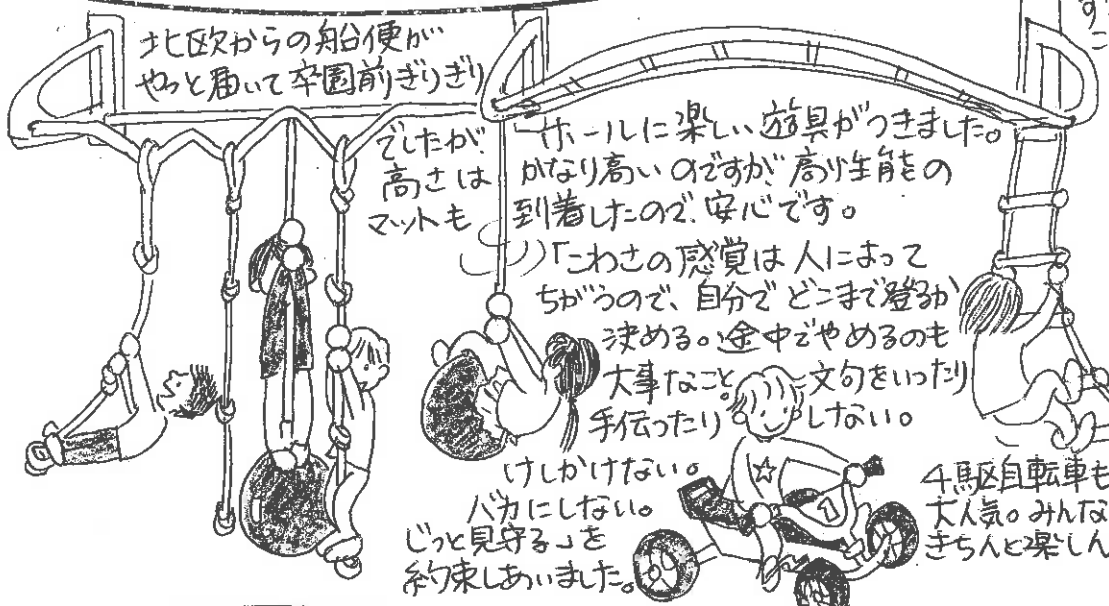 北欧からの船便が
やっと届いて卒園前ぎりぎり
でしたが、ホールに楽しい遊具がつきました。
高さは かなり高いのですが、高性能の
マットも 到着したので、安心です。
「こわさの感覚は人によって
ちがうので、自分でどこまで登るか
決める。途中でやめるのも
大事なこと。文句をいったり
手伝ったりしない。
けしかけない。
バカにしない。
じっと見守る」を
約束しあいました。
4駆自転車も
大人気。みんな
きちんと楽しん